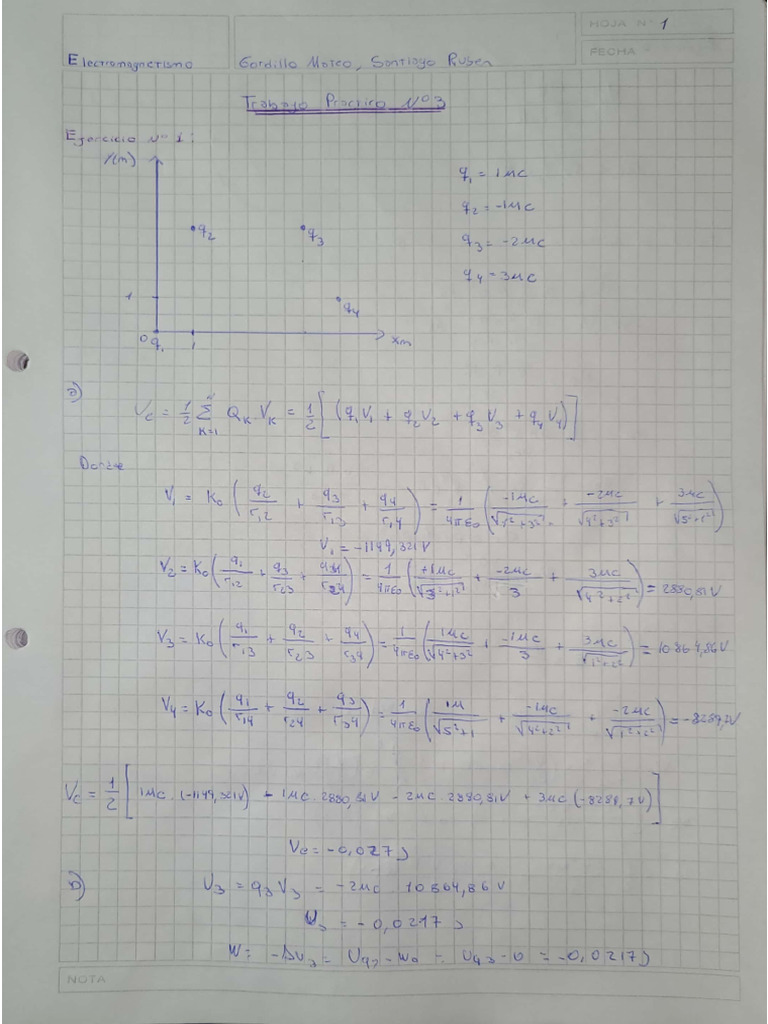 HOJA N° 1
FECHA
Electromagnetismo Gordillo Mateo, Santiago Ruben
Trabajo Practico N°3
Ejercicio N° 1:
Y(m)
q₁ = 1μC
q₂ = -1μC
q₃ = -2μC
q₄ = 3μC
q₂
q₃
1
q₄
0 q₁ 1 Xm
a)
Uc = 1/2 Σ(K=1, n) Qk Vk = 1/2 [(q₁V₁ + q₂V₂ + q₃V₃ + q₄V₄)]
Donde
V₁ = K₀ (q₂/r₁₂ + q₃/r₁₃ + q₄/r₁₄) = 1/4πε₀ (-1μC/√(1²+3²) + -2μC/√(4²+3²) + 3μC/√(5²+1²))
V₁ = -1149,321V
V₂ = K₀ (q₁/r₁₂ + q₃/r₂₃ + q₄/r₂₄) = 1/4πε₀ (+1μC/√(3²+1²) + -2μC/3 + 3μC/√(4²+2²)) = 2880,81V
V₃ = K₀ (q₁/r₁₃ + q₂/r₂₃ + q₄/r₃₄) = 1/4πε₀ (1μC/√(4²+3²) + -1μC/3 + 3μC/√(1²+2²)) = 10864,86V
V₄ = K₀ (q₁/r₁₄ + q₂/r₂₄ + q₃/r₃₄) = 1/4πε₀ (1μ/√(5²+1) + -1μC/√(4²+2²) + -2μC/√(1²+2²)) = -8289,7V
Uc = 1/2 [1μC . (-1149,321V) - 1μC . 2880,81V - 2μC . 2880,81V + 3μC (-8289,7V)]
Uc = -0,027J
b)
U₃ = q₃V₃ = -2μC 10864,86V
U₃ = -0,0217J
W = -ΔU₃ = Uq₃ - U∞ = Uq₃ - 0 = -0,0217J
NOTA